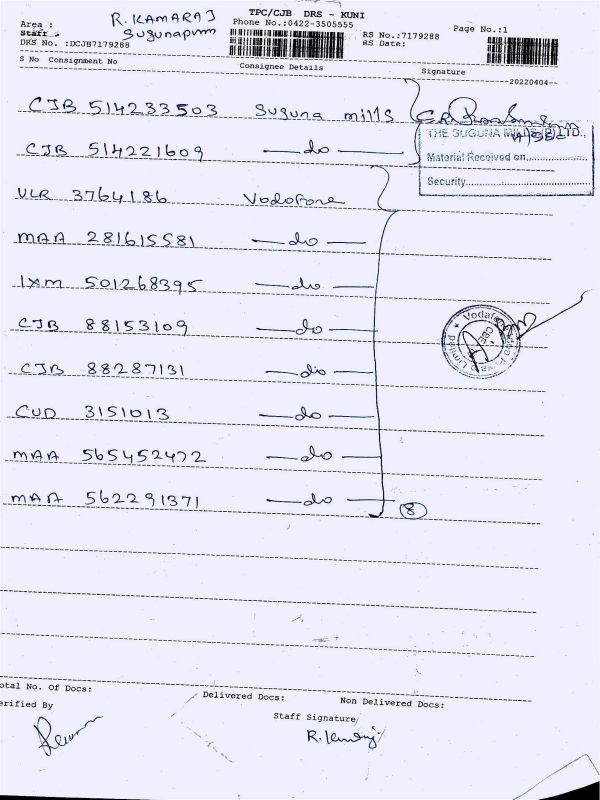 TPC/CJB DRS - KUNI
Area : R. KAMARAJ Phone No.:0422-3505555 Page No.:1
Staff : Sugunapuram RS No.:7179288
DRS No. :DCJB7179288 RS Date:
S No Consignment No Consignee Details Signature
--20220404--
CJB 514233503 Suguna mills
THE SUGUNA MILLS (P) LTD.
CJB 514221609 — do —
Material Received on
Security
VLR 3764186 Vodofone
MAA 281615581 — do —
IXM 501268395 — do —
CJB 88153109 — do —
Vodafone Limited
CJB 88287131 — do —
CUD 3151013 — do —
MAA 565452472 — do —
MAA 562291371 — do — 8
otal No. Of Docs: Delivered Docs: Non Delivered Docs:
erified By Staff Signature
R. Kamaraj